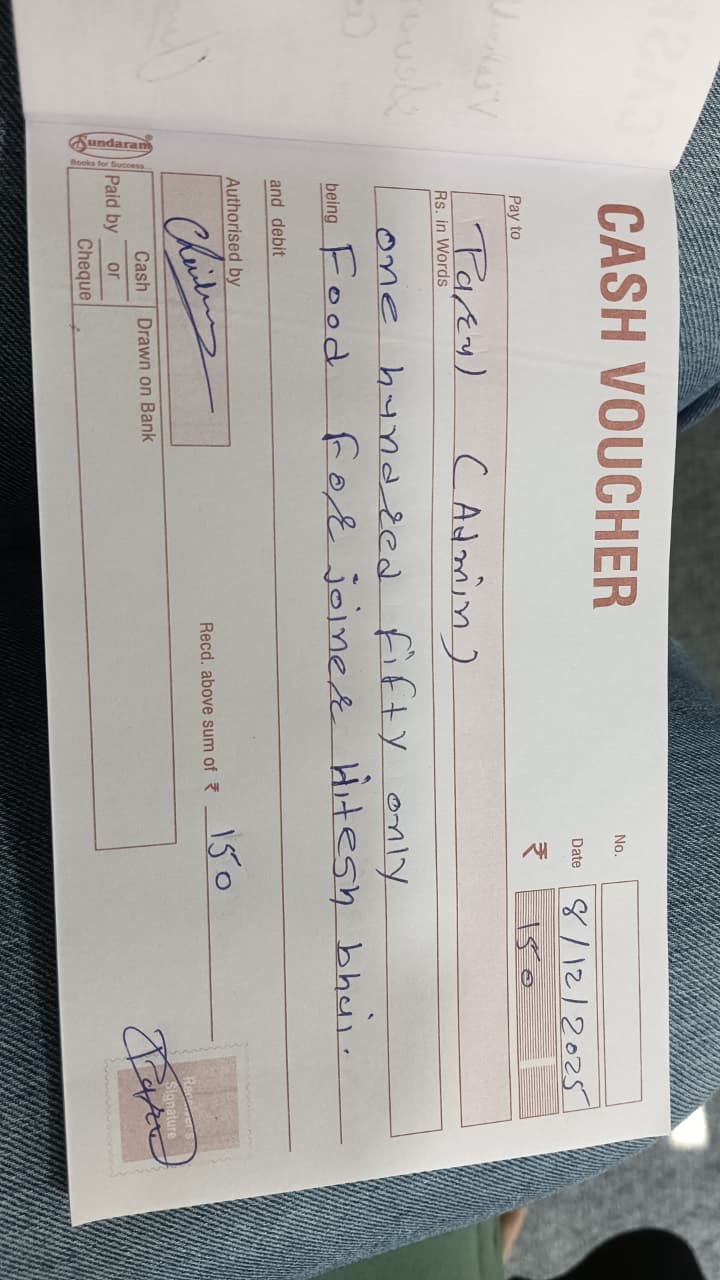 CASH VOUCHER
No.
Date 8/12/2025
₹ 150
Pay to
Parul (Admin)
Rs. in Words
one hundred fifty only
being Food For joiner Hitesh bhai.
and debit
Authorised by
Recd. above sum of ₹ 150
Receiver's
Signature
Parul
Sundaram®
Books for Success...
Paid by Cash or Cheque
Drawn on Bank